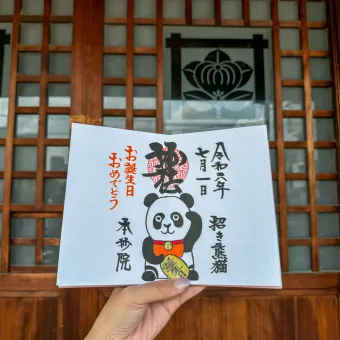 令和六年
七月一日
招き熊猫
お誕生日
おめでとう
本妙院